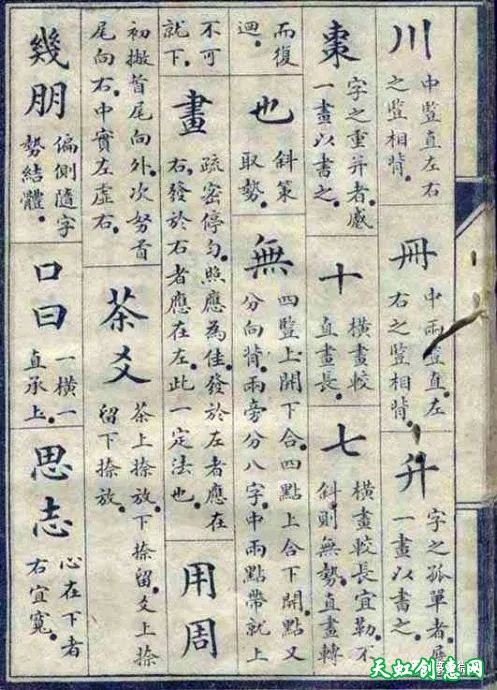 川
中豎直左右
之豎相背
冊
中兩豎直左
右之豎相背
升
字之孤單者展
一畫以書之
棗
字之重并者慼
一畫以書之
十
橫畫較
直畫長
七
橫畫較長宜勒不
斜則無勢直畫轉
而復
迴
也
斜策
取勢
無
四豎上開下合四點上合下開點又
分向背兩旁分八字中兩點帶就上
不可
就下
畫
疏密停勻照應為佳發於左者應在
右發於右者應在左此一定法也
用周
初撇首尾向外次努首
尾向右中實左虛右
茶爻
茶上捺放下捺留爻上捺
留下捺放
幾朋
偏側隨字
勢結體
口曰
一橫一
直承上
思志
心在下者
右宜寬
天虹创意网